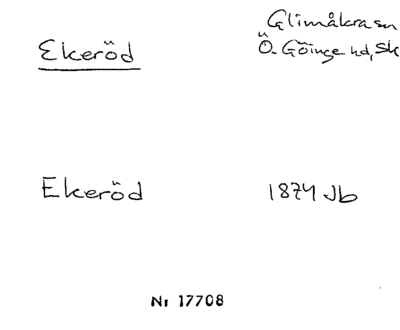 Glimåkra sn
Ekeröd
Ö. Göinge hd, Sk
Ekeröd 1874 Jb
Nr 17708